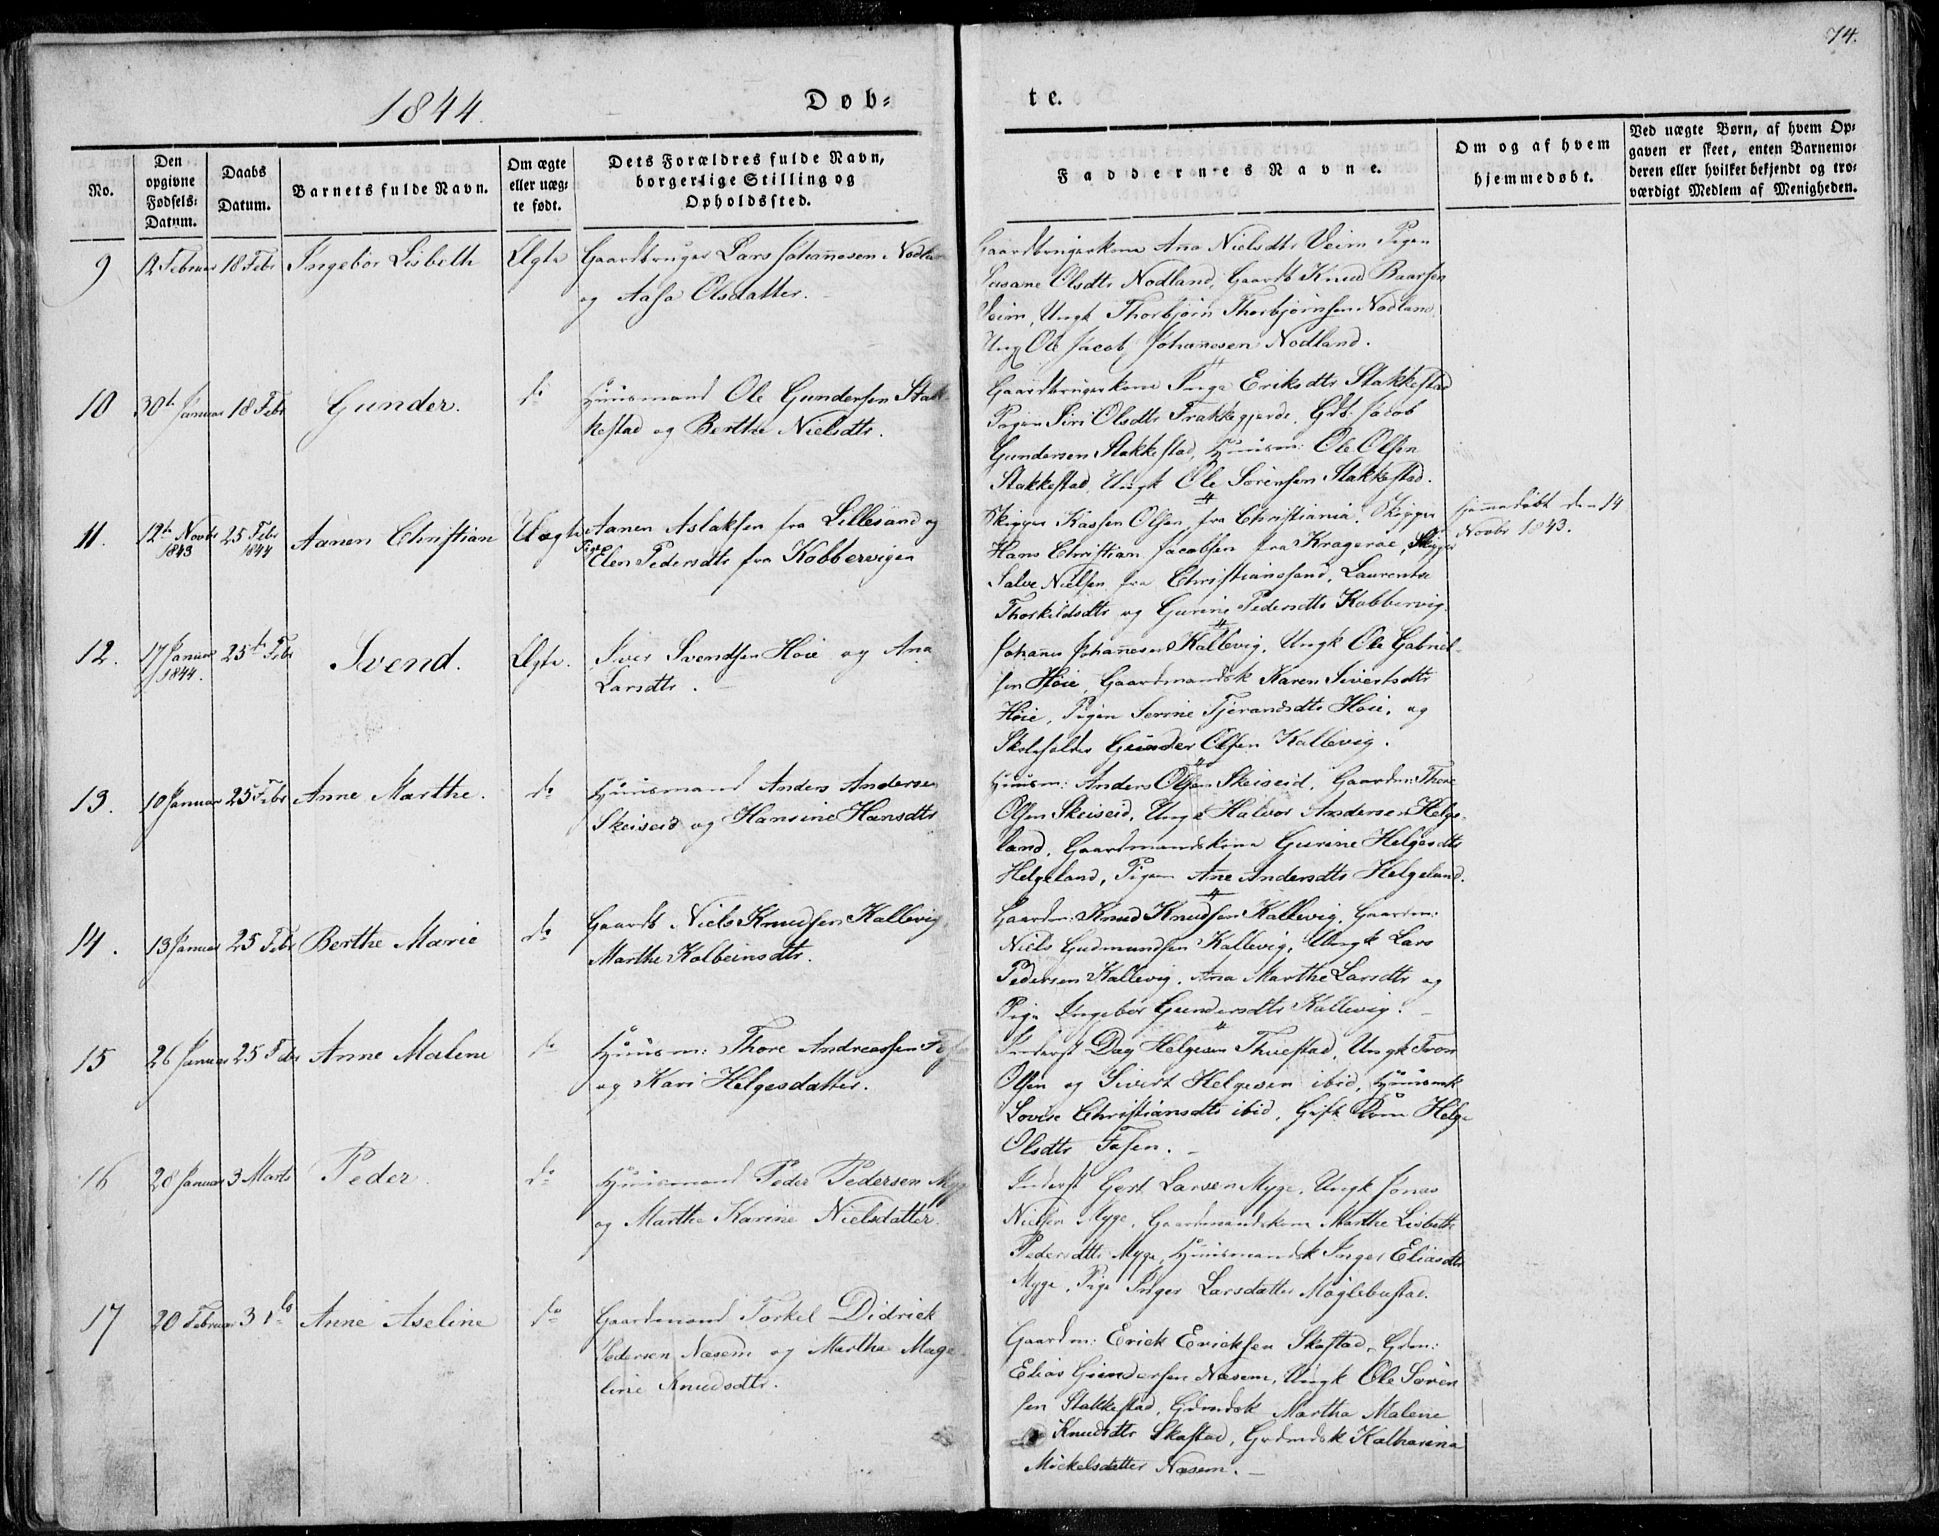 74.
1844.
Døb-
te.
No.
Den opgivne Fødsels-Datum.
Daabs Datum.
Barnets fulde Navn.
Om ægte eller uæg-te født.
Dets Forældres fulde Navn, borgerlige Stilling og Opholdssted.
Faddernes Navne.
Om og af hvem hjemmedøbt.
Ved uægte Børn, af hvem Op-gaven er skeet, enten Barnemo-deren eller hvilket bekjendt og tro-værdigt Medlem af Menigheden.
9
12 Februar
18 Febr
Ingebor Lisbeth
Ægte
Gaardbruger Lars Johannesen Nodland
og Aasa Olsdatter.
Gaardbrugerkone Ana Nielsdtr Veim Pigen
Susane Olsdtr Nodland, Gaardb Knud Baarsen
Seim, Ungk Thorbjørn Thorbjørnsen Nodland
Ungk Ole Jacob Johannesen Nodland.
10
30te Januar
18 Febr
Gunder.
do
Huusmand Ole Gundersen Stak-
kestad og Berthe Nielsdtr.
Gaardbrugerkone Inge Eriksdtr Stakkestad
Pigen Siri Olsdtr Frakkegjerde, Grb: Jacob
Gundersen Stakkestad, Huusm: Ole Olsen
Stakkestad, Ungk Ole Sørensen Stakkestad.
11.
12te Novbr 1843
25 Febr 1844
Aanen Christian
Uægte
Aanen Aslaksen fra Lillesand og
Pige Elen Pedersdtr fra Kobbervigen
Skipper Kassen Olsen, fra Christiania, Skipper
Hans Christian Jacobsen fra Kragerøe, Skipper
Salve Nielsen fra Christianssand, Laurentse
Thorkildsdtr og Gurine Pedersdtr Kobbervig.
Hjemmedøbt den 14
Novbr 1843.
12.
17 Januar 1844.
25te Febr
Svend.
Ægte.
Siver Svendsen Høie og Ana
Larsdtr.
Johanes Johannesen Kallevig, Ungk Ole Gabriel-
sen Høie, Gaardmandsk Karen Sivertsdtr
Høie, Pigen Serine Tjerandsdtr Høie, og
Skoleholder Gunder Olsen Kallevig.
13.
10 Januar
25 Febr
Anne Marthe.
do
Huusmand Anders Andersen
Skeiseid og Hansine Hansdtr
Huusm: Anders Olsen Skeiseid, Gaardm: Thore
Olsen Skeiseid, Ungk Halvor Andersen Helge-
land, Gaardmandskone Gurine Helgesdtr
Helgeland, Pigen Ane Andersdtr Helgeland.
14.
13 Januar
25 Febr
Berthe Marie
do
Gaardb Niels Knudsen Kallevig
Marthe Kolbeinsdtr.
Gaardm: Knud Knudsen Kallevig, Gaardm:
Niels Gudmundsen Kallevig, Ungk Lars
Pedersen Kallevig, Ana Marthe Larsdtr og
Pige Ingebor Gundersdtr Kallevig.
15
26 Januar
25 Febr
Anne Malene
do
Huusm: Thore Andreassen
og Kari Helgesdatter.
Inderst Dag Helgesen Thuestad, Ungk Tron
Olsen og Sivert Helgesen ibid, Huusmk
Lovise Christiansdtr ibid, Gift Kone Helge
Olsdtr Fosen.
16
28 Januar
3 Marts
Peder.
do
Huusmand Peder Pedersen Myge
og Marthe Karine Nielsdatter.
Inderst Gert Larsen Myge, Ungk Jonas
Nielsen Myge, Gaardmandskone Marthe Lisbeth
Pedersdtr Myge, Huusmandsk Inger Eliasdtr
Myge, Pige Inger Larsdatter Møglebustad.
17
20 Februar
3 do
Anne Aseline
do
Gaardmand Torkel Didrick
Pedersen Næsem og Marthe Mage-
line Knudsdtr.
Gaardm: Erick Ericksen Skastad, Grdm:
Elias Gundersen Næsem, Ungk Ole Søren
sen Stakkestad, Grdmdsk Martha Malene
Knudsdtr Skastad, Grdmdsk Katharina
Mickelsdatter Næsem.